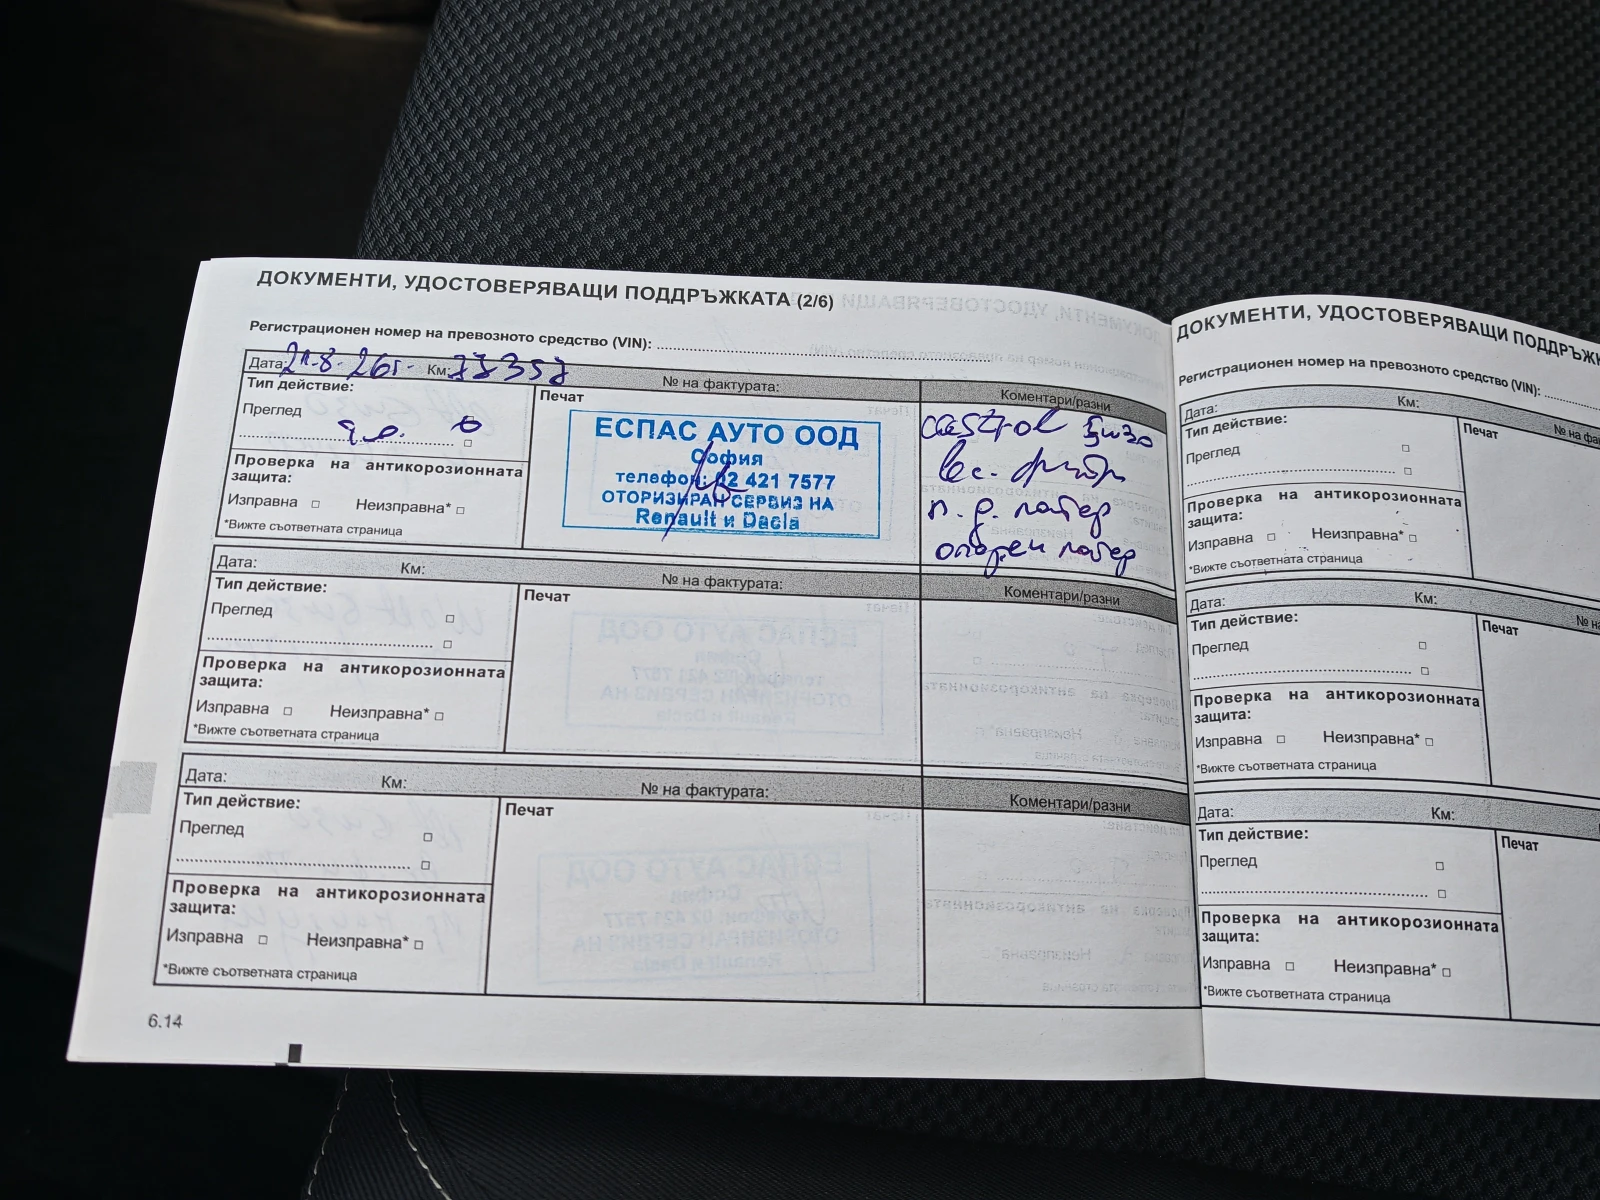 ДОКУМЕНТИ, УДОСТОВЕРЯВАЩИ ПОДДРЪЖКАТА (2/6)
Регистрационен номер на превозното средство (VIN):
Дата: 21.8.26г. Км: № на фактурата: Коментари/разни
Тип действие: Печат
Преглед
Проверка на антикорозионната
защита:
Изправна Неизправна*
*Вижте съответната страница
ЕСПАС АУТО ООД
София
телефон: 02 421 7577
ОТОРИЗИРАН СЕРВИЗ НА
Renault и Dacia
castrol 5w30
опорен лагер
Дата: Км: № на фактурата: Коментари/разни
Тип действие: Печат
Преглед
Проверка на антикорозионната
защита:
Изправна Неизправна*
*Вижте съответната страница
Дата: Км: № на фактурата: Коментари/разни
Тип действие: Печат
Преглед
Проверка на антикорозионната
защита:
Изправна Неизправна*
*Вижте съответната страница
6.14
ДОКУМЕНТИ, УДОСТОВЕРЯВАЩИ
Регистрационен номер на превозното средство (VIN):
Дата: Км:
Тип действие: Печат
Преглед
Проверка на антикорозионната
защита:
Изправна Неизправна*
*Вижте съответната страница
Дата: Км:
Тип действие: Печат
Преглед
Проверка на антикорозионната
защита:
Изправна Неизправна*
*Вижте съответната страница
Дата: Км:
Тип действие: Печат
Преглед
Проверка на антикорозионната
защита:
Изправна Неизправна*
*Вижте съответната страница